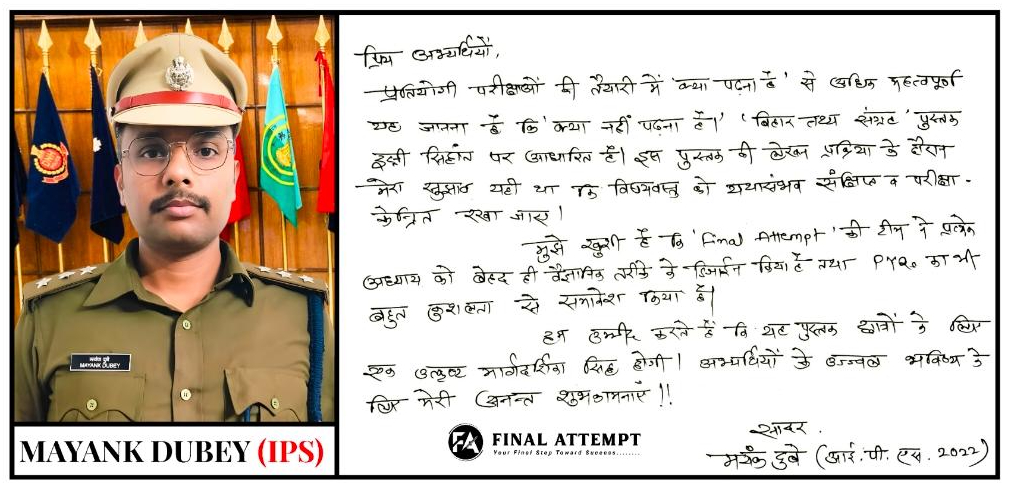 प्रिय अभ्यर्थियों,
प्रतियोगी परीक्षाओं की तैयारी में 'क्या पढ़ना है' से अधिक महत्वपूर्ण
यह जानना है कि 'क्या नहीं पढ़ना है।' 'बिहार तथ्य संग्रह' पुस्तक
इसी सिद्धांत पर आधारित है। इस पुस्तक की लेखन प्रक्रिया के दौरान
मेरा सुझाव यही था कि विषयवस्तु को यथासंभव संक्षिप्त व परीक्षा-
केन्द्रित रखा जाए।
मुझे खुशी है कि 'Final Attempt' की टीम ने प्रत्येक
अध्याय को बेहद ही वैज्ञानिक तरीके से डिजाईन किया है तथा PYQs का भी
बहुत कुशलता से समावेश किया है।
हम उम्मीद करते हैं कि यह पुस्तक छात्रों के लिए
एक उत्कृष्ट मार्गदर्शिका सिद्ध होगी। अभ्यर्थियों के उज्ज्वल भविष्य के
लिए मेरी अनन्त शुभकामनाएँ!!
सादर.
मयंक दुबे (आई.पी.एस. 2022)
मयंक दुबे
MAYANK DUBEY
MAYANK DUBEY (IPS)
FA FINAL ATTEMPT
Your Final Step Toward Success........